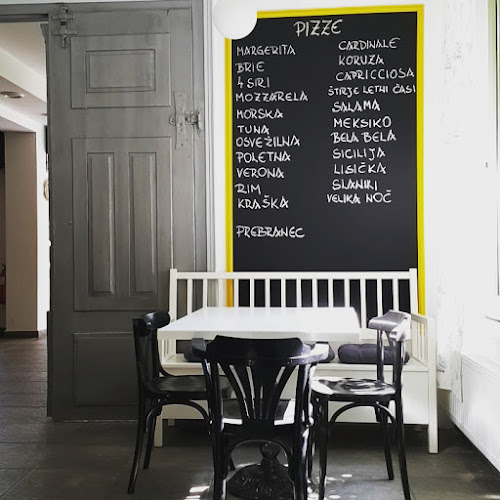 PIZZE
MARGERITA
BRIE
4 SIRI
MOZZARELA
MORSKA
TUNA
OSVEŽILNA
POLETNA
VERONA
RIM
KRAŠKA
PREBRANEC
CARDINALE
KORUZA
CAPRICCIOSA
ŠTIRJE LETNI ČASI
SALAMA
MEKSIKO
BELA BELA
SICILIJA
LISIČKA
SLANIK
VELIKA NOČ